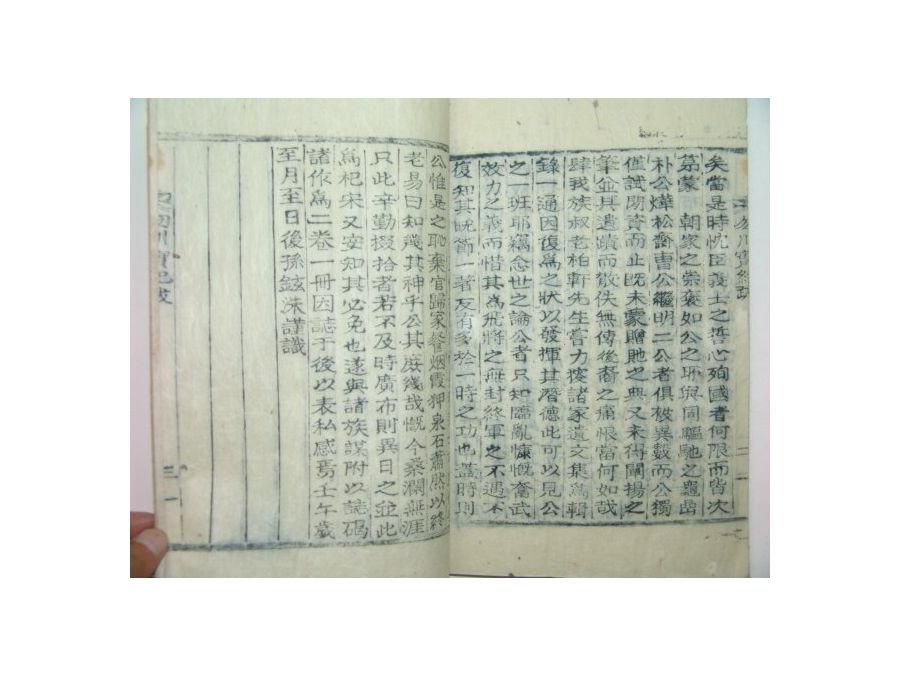 矣當是時忱臣義士之誓心殉國者何限而皆次
第蒙 朝家之崇褒如公之聯與同驅馳之
朴公燁松齋曺公繼明二公者俱被異數而公獨
僅試閑資而止旣未蒙贈貤之典又未得闡揚之
筆並其遺蹟而散佚無傳後裔之痛恨當何如哉
肆我族叔老柏軒先生嘗力按諸家遺文集爲輯
錄一通因復爲之狀以發揮其潛德此可以見公
之一班耶竊念世之論公者只知臨亂慷慨奮武
效力之義而惜其爲飛將之無封終軍之不遇不
復知其晩節一著反有多於一時之功也盖時則
公惟是之恥棄官歸家餐烟霞狎泉石蕭然以終
老易曰知幾其神乎公其庶幾哉慨今桑瀾無涯
只此辛勤掇拾者若不及時廣布則異日之並此
爲杞宋又安知其必免也遂與諸族謀附以誌碣
諸作爲二卷一冊因誌于後以表私感焉壬午歲
至月至日後孫鉉洙謹識